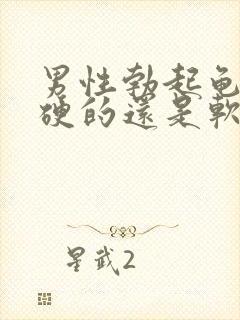 男性勃起龟
硬的還是軟
星武2